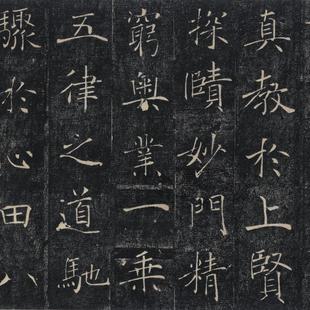 真教於上賢
探賾妙門精
窮奧業一乘
五律之道馳
驟於心田八